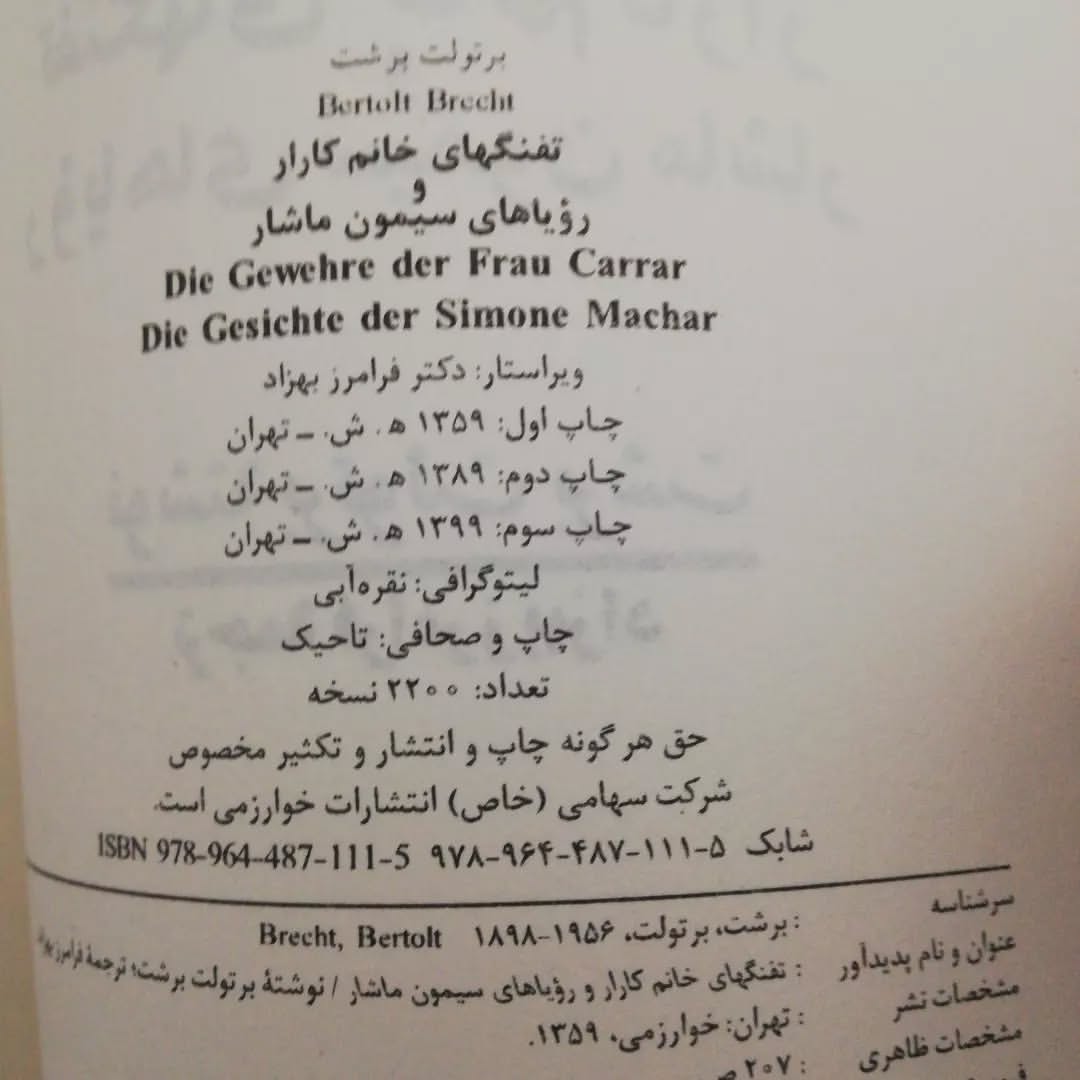 برتولت برشت
Bertolt Brecht
تفنگهای خانم کارار
و
رؤیاهای سیمون ماشار
Die Gewehre der Frau Carrar
Die Gesichte der Simone Machar
ویراستار: دکتر فرامرز بهزاد
چاپ اول: ۱۳۵۹ ه. ش. ــ تهران
چاپ دوم: ۱۳۸۹ ه. ش. ــ تهران
چاپ سوم: ۱۳۹۹ ه. ش. ــ تهران
لیتوگرافی: نقره‌آبی
چاپ و صحافی: تاجیک
تعداد: ۲۲۰۰ نسخه
حق هر گونه چاپ و انتشار و تکثیر مخصوص
شرکت سهامی (خاص) انتشارات خوارزمی است.
شابک ۹۷۸-۹۶۴-۴۸۷-۱۱۱-۵ ISBN 978-964-487-111-5
سرشناسه : برشت، برتولت، ۱۹۵۶-۱۸۹۸ Brecht, Bertolt
عنوان و نام پدیدآور : تفنگهای خانم کارار و رؤیاهای سیمون ماشار / نوشتهٔ برتولت برشت؛ ترجمهٔ فرامرز بهزاد
مشخصات نشر : تهران: خوارزمی، ۱۳۵۹.
مشخصات ظاهری : ۲۰۷ ص